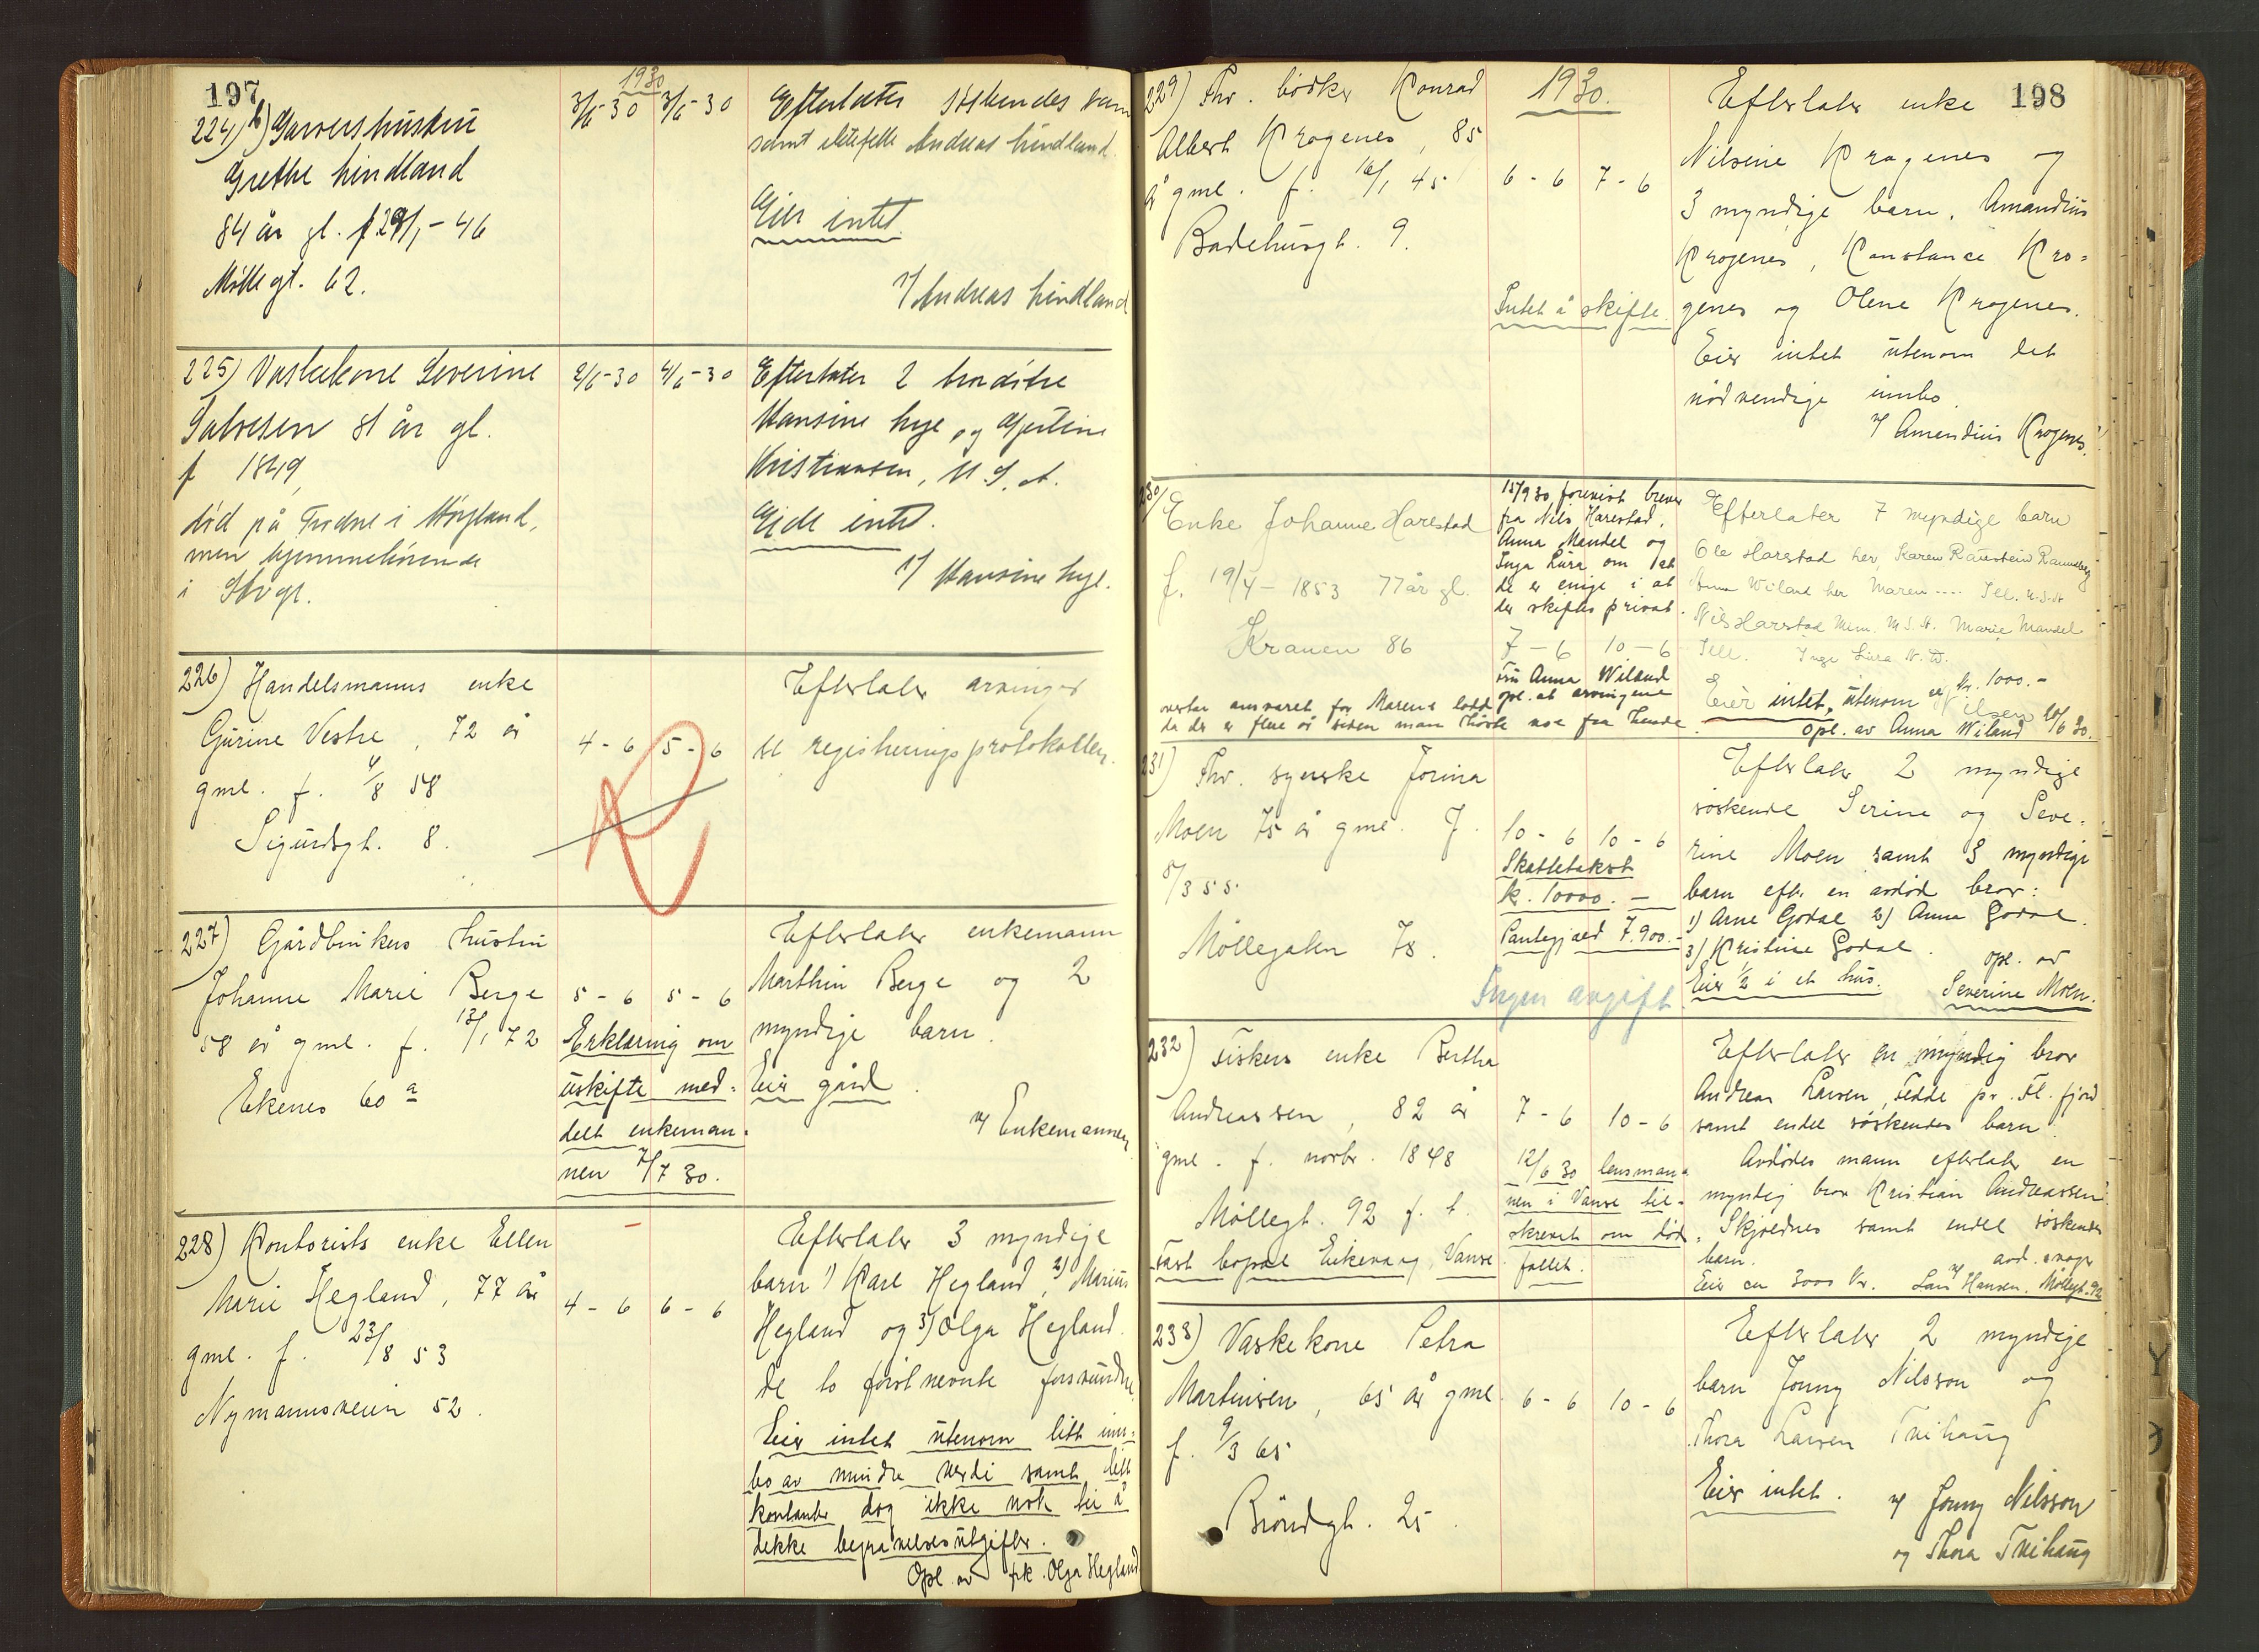 197
1930
224) b) Garvershustru
Grethe Lindland
84 år gl. f 29/1 - 46
Møllegt. 62.
3/6-30 3/6-30
Efterlater søskendes barn
samt ektefelle Andreas Lindland.
Eier intet.
v/ Andreas Lindland
225) Vaskekone Severine
Salvesen 81 år gl.
f 1849
død på Tredne i Høyland,
men hjemmehørende
i Stvgr.
2/6-30 4/6-30
Efterlater 2 brordøtre
Hansine Lye og
Kristiansen, U.S.A.
Eide intet.
v/ Hansine Lye.
226) Handelsmanns enke
Gurine Vestre, 72 år
gml. f. 4/8 58
Sigurdsgt. 8.
4 - 6 5 - 6
R
Efterlater arvinger
se registreringsprotokollen.
227) Gårdbrukers hustru
Johanne Marie Berge
58 år gml. f. 13/1 72
Ekenes 60 a
5 - 6 5 - 6
Erklæring om
uskifte med-
delt enkeman-
nen 7/7 30.
Efterlater enkemann
Marthin Berge og 2
myndige barn.
Eier gård.
v/ Enkemannen
228) Kontorists enke Ellen
Marie Hegland, 77 år
gml. f. 23/8 53
Nymannsveien 52.
4 - 6 6 - 6
Efterlater 3 myndige
barn 1) Karl Hegland, 2) Marius
Hegland og 3) Olga Hegland.
De to førstnevnte forsvundne
Eier intet utenom litt inn-
bo av mindre verdi samt litt
kontanter dog ikke nok til å
dekke begravelsesutgifter.
Opl. av frk. Olga Hegland
198
1930.
229) Fhv. bødker Konrad
Albert Krogenes, 85
år gml. f. 16/1 45
Badehusgt. 9.
6 - 6 7 - 6
Intet å skifte.
Efterlater enke
Nilsine Krogenes og
3 myndige barn, Amandius
Krogenes, Konstance Kro-
genes og Olene Krogenes.
Eier intet utenom det
nødvendige innbo.
v/ Amandius Krogenes.
230) Enke Johanne Harestad
f. 19/4 - 1853 77 år gl.
Kranen 86
15/9 30 forevist brever
fra Nils Harestad,
Anna Mandel og
Inga Lura om at
de er enige i at
der skiftes privat.
7 - 6 10 - 6
Fru Anna Wiland
opl. at arvingene
overtar ansvaret for Marens lodd
da der er flere år siden man hørte noe fra hende.
Efterlater 7 myndige barn
Ole Harestad her, Karen Raustein Randaberg
Anna Wiland her Maren .... Ill. U.S.A
Nils Harestad U.S.A. Marie Mandel
Ill. Inga Lura
Eier intet, utenom kr. 1000.-
Opl. av Anna Wiland 20/6 30.
231) Fhv. syerske Jorina
Moen 75 år gml. f.
5/3 55.
Møllegaten 78.
10 - 6 10 - 6
Skattetakst
k. 10000. -
Pantegjæld 7.900.-
Ingen avgift
Efterlater 2 myndige
søskende Serine og Seve-
rine Moen samt 3 myndige
barn efter en avdød bror:
1) Arne Godal 2) Anna Godal.
3) Kristine Godal.
Eier 1/2 i et hus.
opl. av
Severine Moen.
232) Fiskers enke Bertha
Andreassen, 82 år
gml. f. novbr. 1848
Møllegt. 92 f. t.
Fast bopæl Eikevaag, Vanse.
7 - 6 10 - 6
12/6 30 lensman-
nen i Vanse til-
skrevet om døds-
fallet.
Efterlater en myndig bror
Andreas Larsen, Fedde pr. Fl. fjord
samt endel søskendes barn.
Avdødes mann efterlater en
myndig bror Kristian Andreassen
Skjoldnes samt endel søskendes
barn.
Eier ca 3000 Kr.
v/ avd. svoger
Lars Hansen. Møllegt. 92
233) Vaskekone Petra
Martinsen, 65 år gml.
f. 9/3 65
Brøndgt. 25.
6 - 6 10 - 6
Efterlater 2 myndige
barn Jonny Nilsson og
Thora Larsen Trihaug
Eier intet.
v/ Jonny Nilsson
og Thora Trihaug